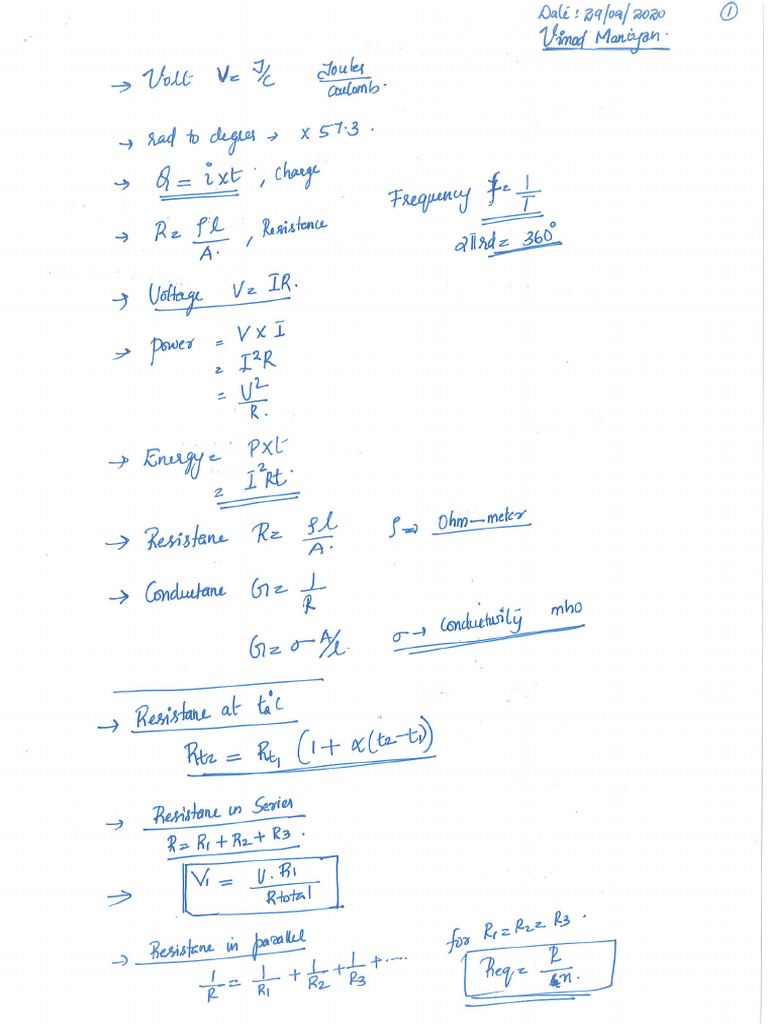 Date: 29/09/2020 ①
Vinod Maniyan.
→ Volt V = J/C Joules/Coulomb.
→ rad to degrees → x 57.3.
→ Q = i x t, charge
Frequency f = 1/T
→ R = ρl/A., Resistance
2πrd = 360°
→ Voltage V = IR.
→ power = V X I
= I²R
= V²/R.
→ Energy = P x t
= I²Rt.
→ Resistane R = ρl/A. ρ ⇒ Ohm-meter
→ Conductane G = 1/R
G = σ A/l. σ → Conductivity mho
→ Resistane at t₂°c
Rt₂ = Rt₁ (1 + α(t₂-t₁))
→ Resistane in Series
R = R₁ + R₂ + R₃.
→ V₁ = V.R₁/Rtotal
→ Resistane in parallel for R₁ = R₂ = R₃.
1/R = 1/R₁ + 1/R₂ + 1/R₃ + .... Req = R/n.